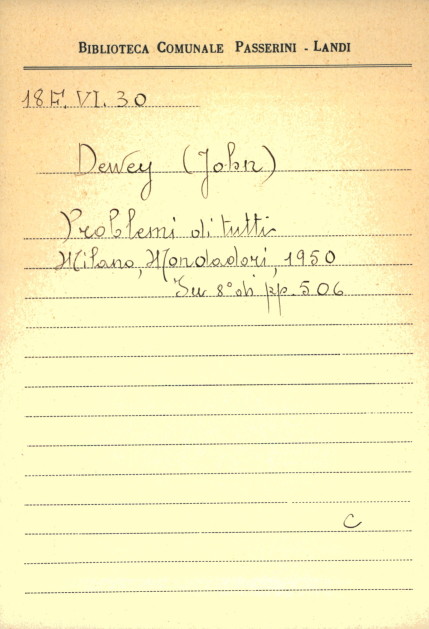 BIBLIOTECA COMUNALE PASSERINI - LANDI
18 F. VI. 30
Dewey (John)
Problemi di tutti
Milano, Mondadori, 1950
In 8° di pp. 506
C